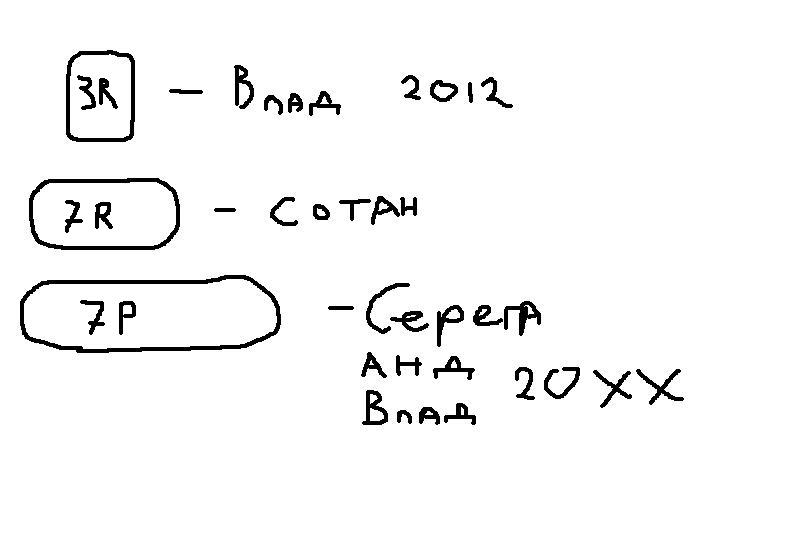 3R - Влад 2012
7R - СОТАН
7P - Серега
АНД 20XX
Влад